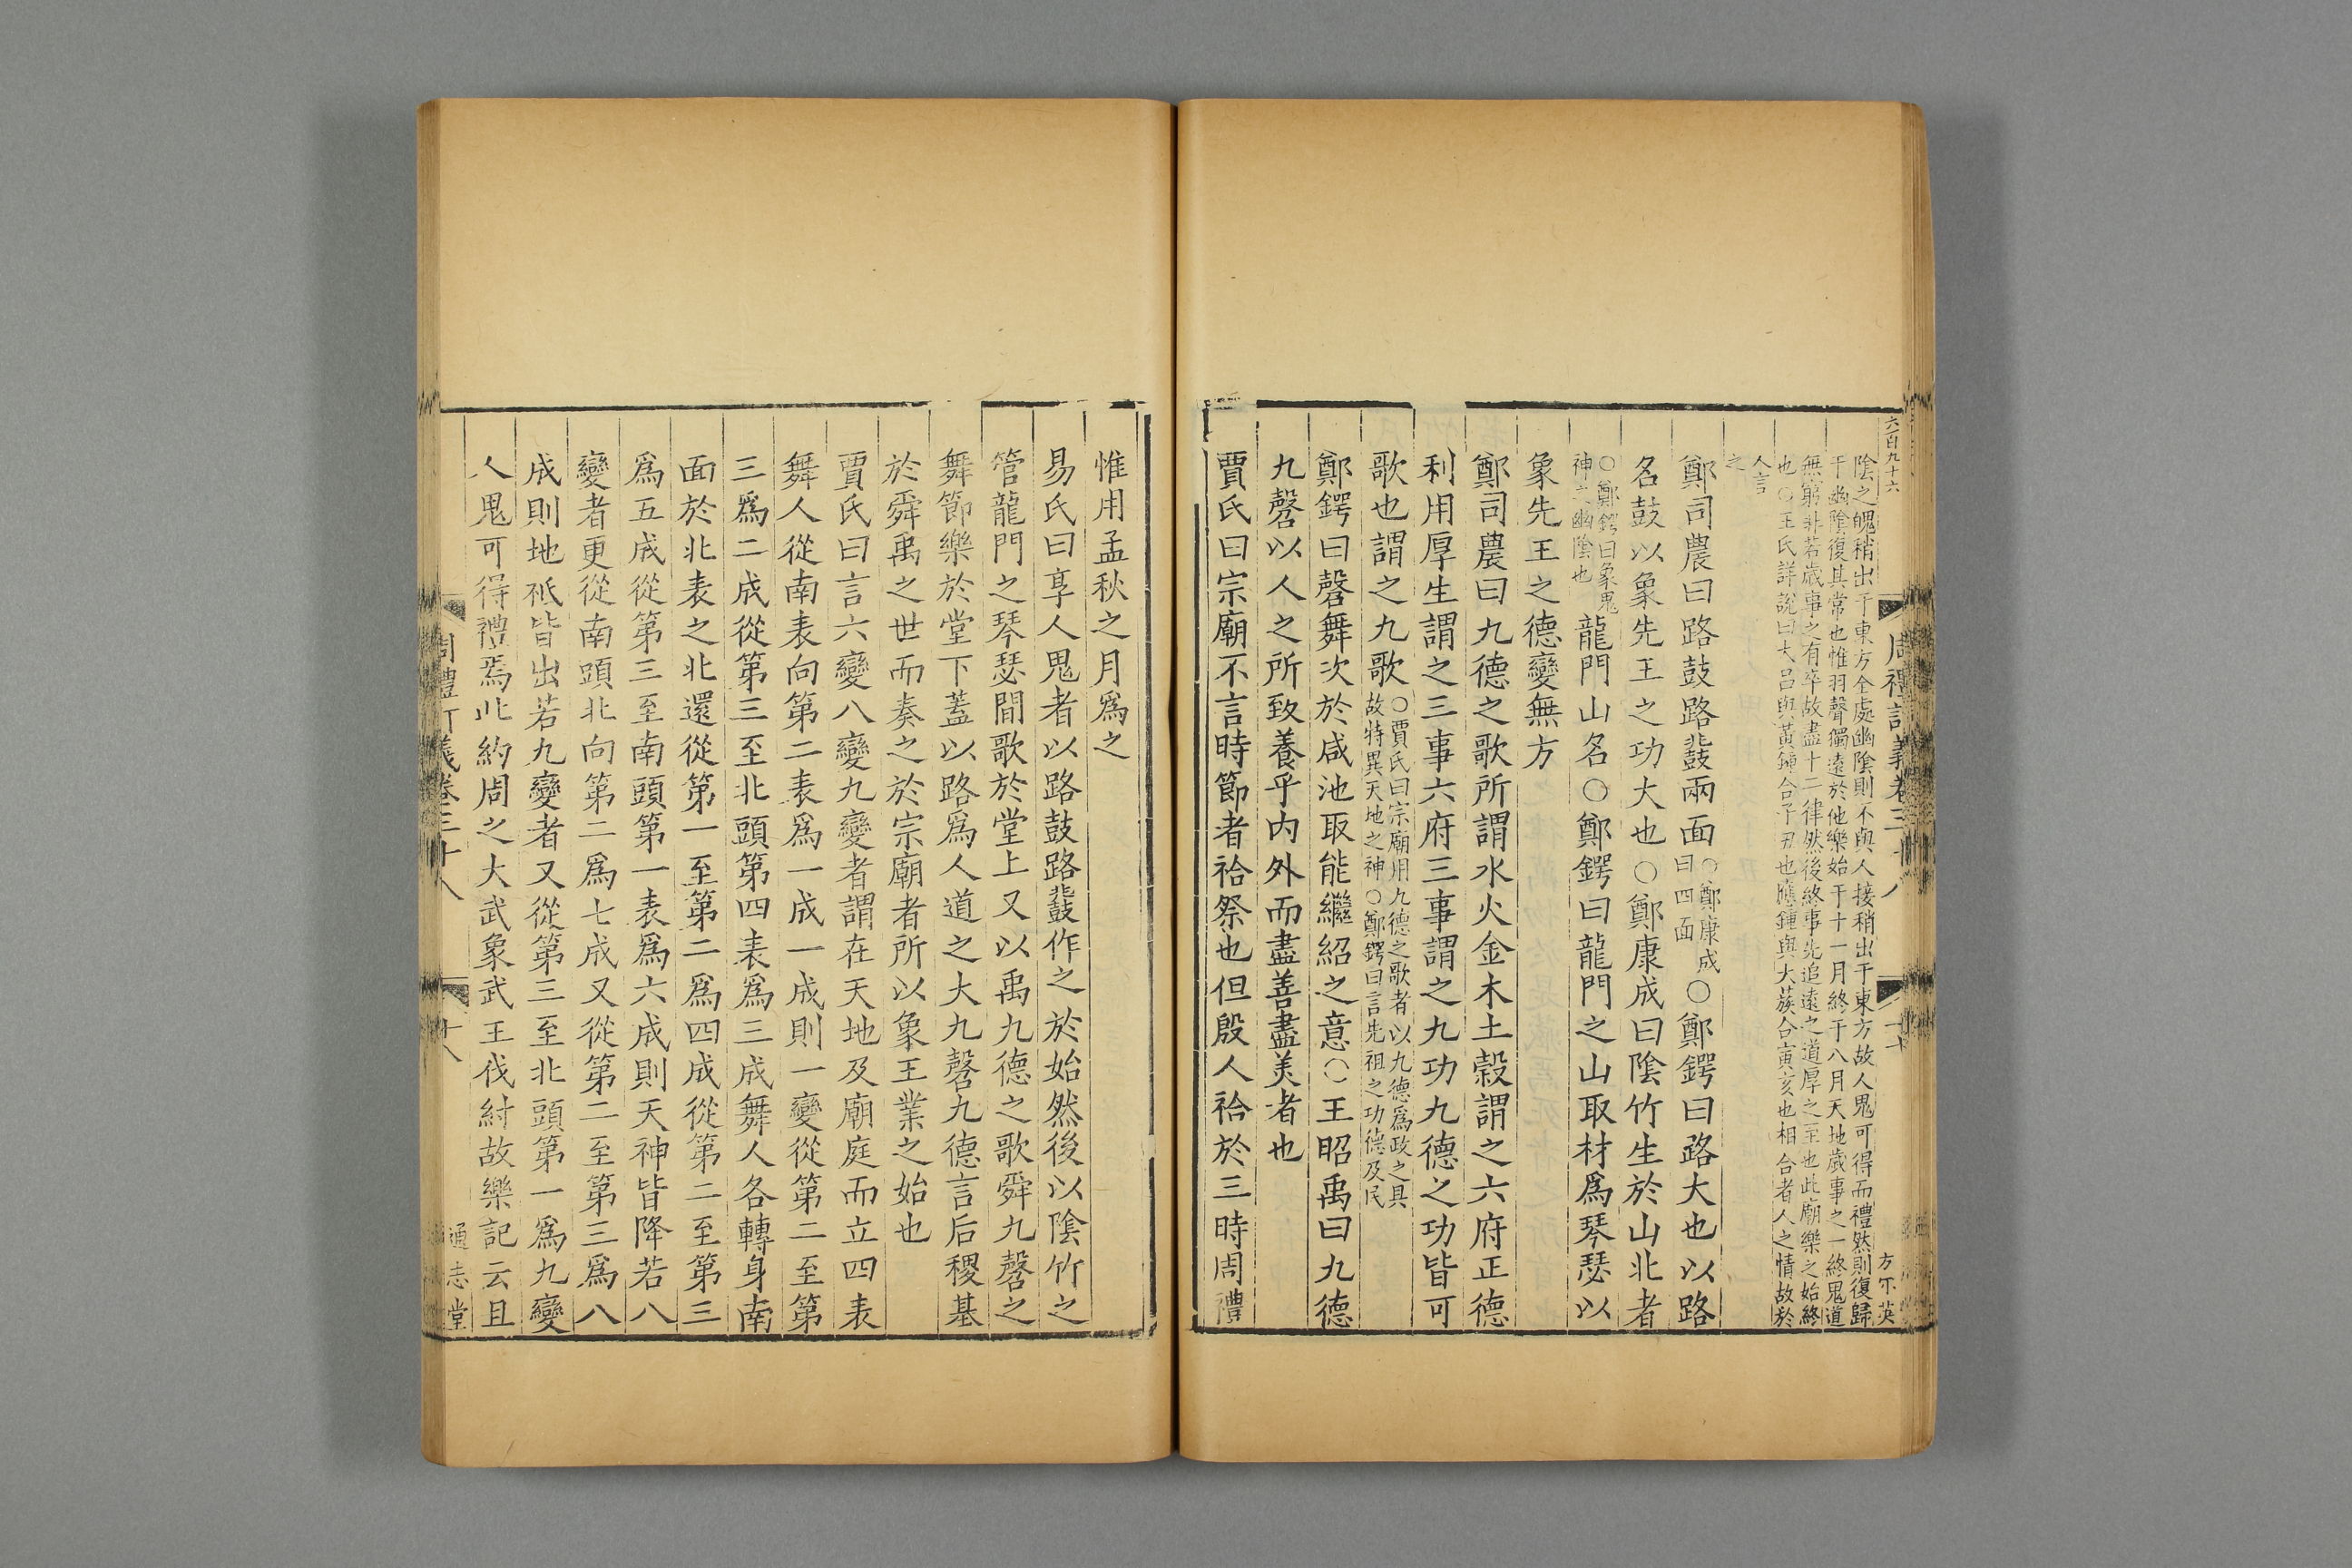 六百九十六
周禮訂義卷三十八
方不英
陰之魄稍出于東方全處幽陰則不與人接稍出于東方故人鬼可得而禮然則復歸
于幽陰復其常也惟羽聲獨遠於他樂始于十一月終于八月天地歲事之一終鬼道
無窮非若歲事之有卒故盡十二律然後終事先追遠之道厚之至也此廟樂之始終
也○王氏詳說曰大呂與黃鍾合子丑也應鍾與大蔟合寅亥也相合者人之情故於
人言
之
鄭司農曰路鼓路鼗兩面○鄭康成曰四面○鄭鍔曰路大也以路
名鼓以象先王之功大也○鄭康成曰陰竹生於山北者
○鄭鍔曰象鬼神之幽陰也龍門山名○鄭鍔曰龍門之山取材爲琴瑟以
象先王之德變無方
鄭司農曰九德之歌所謂水火金木土穀謂之六府正德
利用厚生謂之三事六府三事謂之九功九德之功皆可
歌也謂之九歌○賈氏曰宗廟用九德之歌者以九德爲政之具故特異天地之神○鄭鍔曰言先祖之功德及民
鄭鍔曰磬舞次於咸池取能繼紹之意○王昭禹曰九德
九磬以人之所致養乎内外而盡善盡美者也
賈氏曰宗廟不言時節者祫祭也但殷人祫於三時周禮
惟用孟秋之月爲之
易氏曰享人鬼者以路鼓路鼗作之於始然後以陰竹之
管龍門之琴瑟間歌於堂上又以禹九德之歌舜九磬之
舞節樂於堂下蓋以路爲人道之大九磬九德言后稷基
於舜禹之世而奏之於宗廟者所以象王業之始也
賈氏曰言六變八變九變者謂在天地及廟庭而立四表
舞人從南表向第二表爲一成一成則一變從第二至第
三爲二成從第三至北頭第四表爲三成舞人各轉身南
面於北表之北還從第一至第二爲四成從第二至第三
爲五成從第三至南頭第一表爲六成則天神皆降若八
變者更從南頭北向第二爲七成又從第二至第三爲八
成則地祇皆出若九變者又從第三至北頭第一爲九變
人鬼可得禮焉此約周之大武象武王伐紂故樂記云且
周禮訂義卷三十八
十八
通志堂